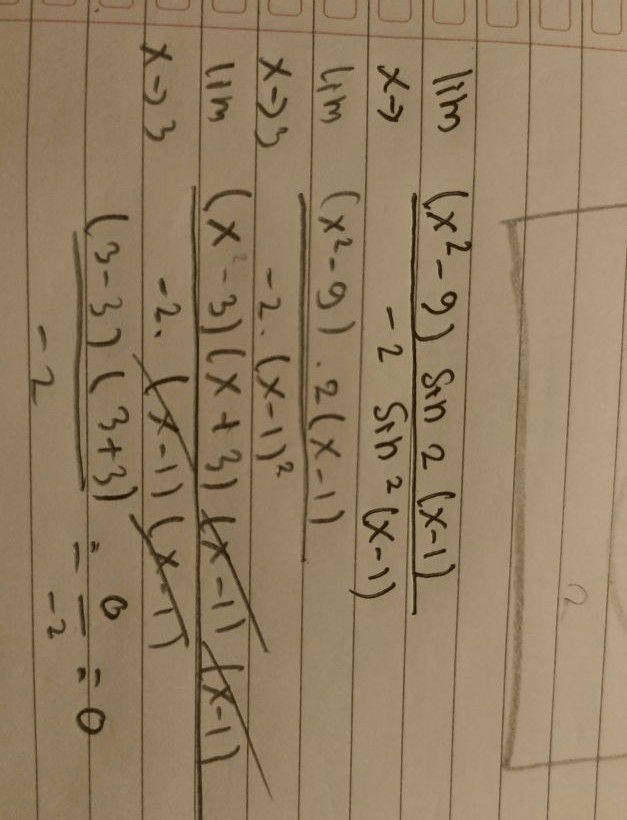 lim (x²-9) sin 2 (x-1)
x→ -2 sin² (x-1)
lim (x²-9) . 2(x-1)
x→3 -2. (x-1)²
lim (x-3)(x+3) (x-1) (x-1)
x→3 -2. (x-1) (x-1)
(3-3) (3+3) = 0 = 0
-2 -2